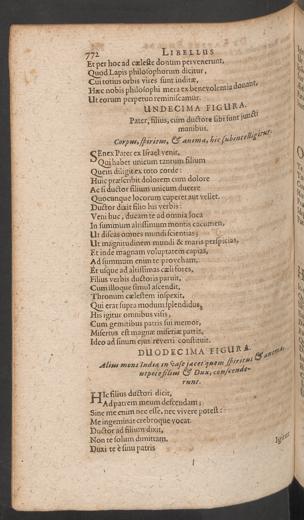 772 LIBELLUS
Et per hoc ad cæleste donum pervenerunt,
Quod Lapis philosophorum dicitur,
Cui totius orbis vires sunt inditæ,
Hæc nobis philosophi mera ex benevolentia donant,
Ut eorum perpetuo reminiscamur.
UNDECIMA FIGURA.
Pater, filius, cum ductore sibi sunt juncti
manibus.
Corpus, spiritus, & anima, hic subintelligitur.
SEnex Pater ex Israel venit,
Qui habet unicum tantum filium
Quem diligit ex toto corde:
Huic præscribit dolorem cum dolore
Ac si ductor filium unicum ducere
Quocunque locorum cuperet aut vellet.
Ductor dixit filio his verbis:
Veni huc, ducam te ad omnia loca
In summum altissimum montis cacumen,
Ut discas omnes mundi scientias;
Ut magnitudinem mundi & maris perspicias,
Et inde magnam voluptatem capias,
Ad summum enim te proveham,
Et usque ad altissimas cæli fores,
Filius verbis ductoris paruit,
Cum illoque simul ascendit,
Thronum cælestem inspexit,
Qui erat supra modum splendidus,
His igitur omnibus visis,
Cum gemitibus patris sui memor,
Misertus est magnæ miseriæ patris,
Ideo ad sinum ejus reverti constituit.
DUODECIMA FIGURA.
Alius mons Indiæ in vase jacet quem spiritus & anima,
utpote filius & Dux, conscende-
runt.
HIc filius ductori dicit,
Ad patrem meum descendam;
Sine me enim nec esse, nec vivere potest:
Me ingeminat crebroque vocat.
Ductor ad filium dixit,
Non te solum dimittam,
Duxi te è sinu patris
Igitur